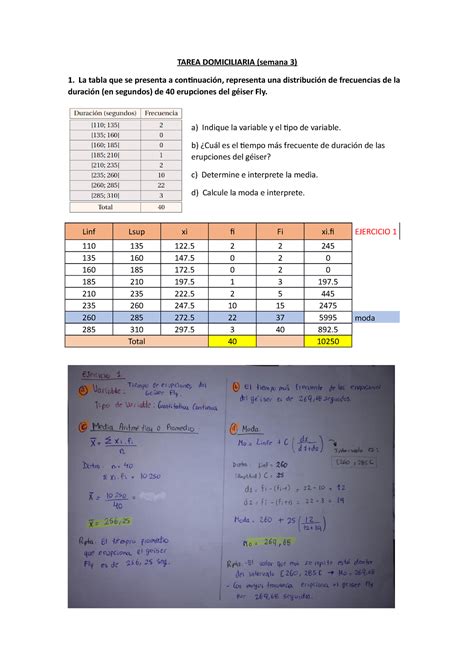 TAREA DOMICILIARIA (semana 3)
1. La tabla que se presenta a continuación, representa una distribución de frecuencias de la
duración (en segundos) de 40 erupciones del géiser Fly.
Duración (segundos) Frecuencia
[110; 135[ 2
[135; 160[ 0
[160; 185[ 0
[185; 210[ 1
[210; 235[ 2
[235; 260[ 10
[260; 285[ 22
[285; 310[ 3
Total 40
a) Indique la variable y el tipo de variable.
b) ¿Cuál es el tiempo más frecuente de duración de las
erupciones del géiser?
c) Determine e interprete la media.
d) Calcule la moda e interprete.
Linf Lsup xi fi Fi xi.fi EJERCICIO 1
110 135 122.5 2 2 245
135 160 147.5 0 2 0
160 185 172.5 0 2 0
185 210 197.5 1 3 197.5
210 235 222.5 2 5 445
235 260 247.5 10 15 2475
260 285 272.5 22 37 5995 moda
285 310 297.5 3 40 892.5
Total 40 10250
Ejercicio 1.
a) Variable: Tiempo de erupciones del
géiser Fly.
Tipo de Variable: Cuantitativa Continua
c) Media Aritmética o Promedio:
X̄ = Σ xi.fi
n
Datos: n = 40
Σ xi.fi = 10 250
X̄ = 10 250 =
40
X̄ = 256,25
Rpta: El tiempo promedio
que erupciona el géiser
Fly es de 256,25 seg.
b) El tiempo más frecuente de las erupciones
del géiser es de 269,68 segundos.
d) Moda:
Mo = Linf + C ( d1
d1+d2 )
Intervalo es:
[260, 285[
Datos: Linf = 260
(Amplitud) C = 25
d1 = fi - (fi-1) = 22 - 10 = 12
d2 = fi - (fi+1) = 22 - 3 = 19
Moda = 260 + 25 ( 12
12+19 )
Mo = 269,68
Rpta: El valor que más se repite está dentro
del intervalo [260, 285[ → Mo = 269,68
géiser Fly
269,68 segundos.